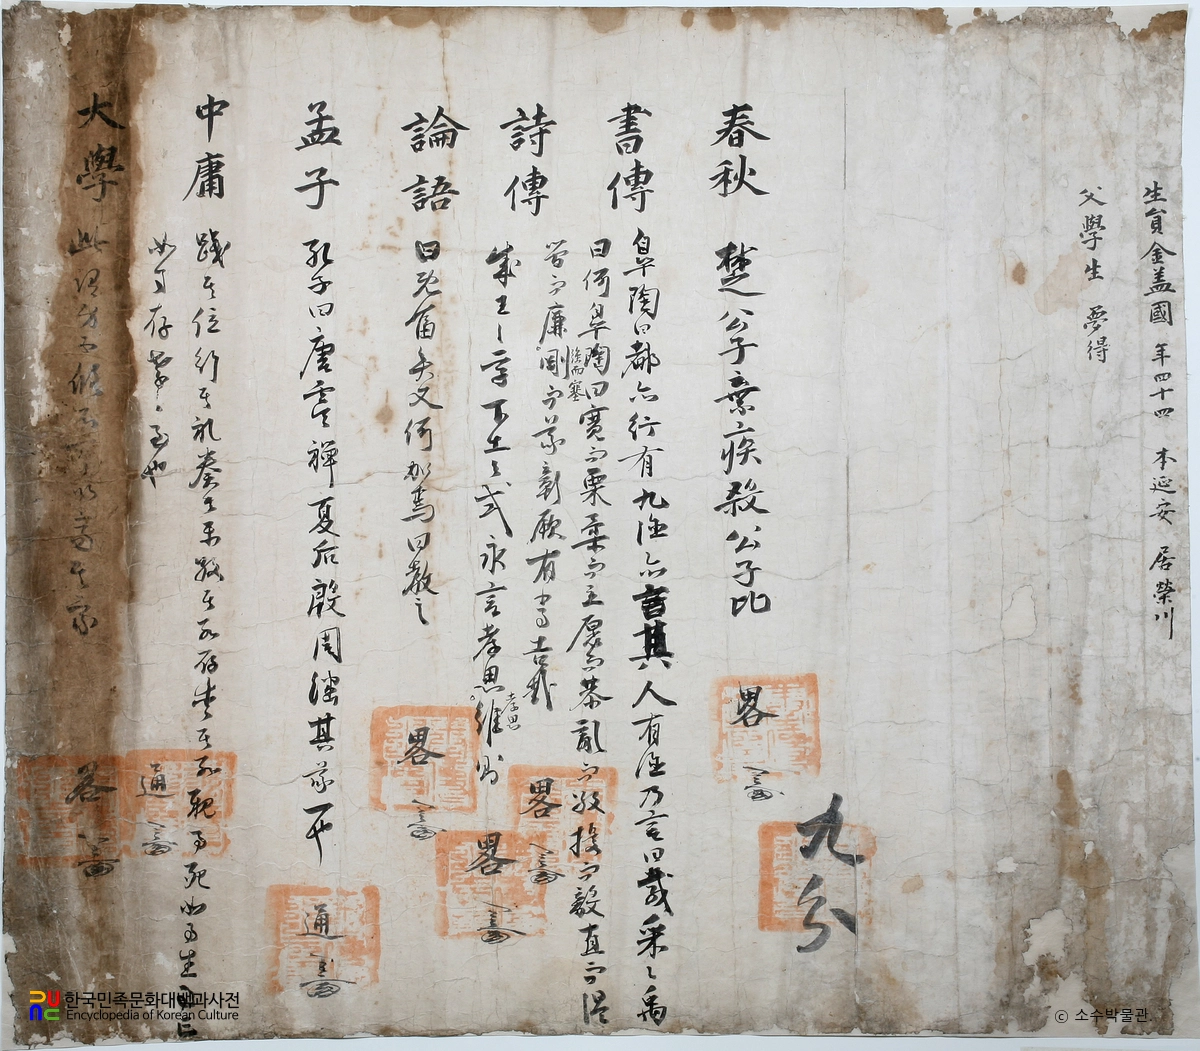 生員金盖國 年四十四 本延安 居榮川
父學生 夢得
九分
春秋 楚公子棄疾殺公子比 畧
書傳 皐陶曰都亦行有九德亦言其人有德乃言曰載采〻禹
曰何皐陶曰寬而栗柔而立愿而恭亂而敬擾而毅直而溫
簡而廉剛而塞彊而義彰厥有常吉哉 畧
詩傳 成王之孚下土之式永言孝思孝思維則 畧
論語 曰旣富矣又何加焉曰敎之 畧
孟子 孔子曰唐虞禪夏后殷周繼其義一也 通
中庸 踐其位行其礼奏其樂敬其所尊愛其所親事死如事生事亡
如事存孝之至也 通
大學 此謂身不修不可以齊其家 畧
한국민족문화대백과사전
Encyclopedia of Korean Culture
© 소수박물관.